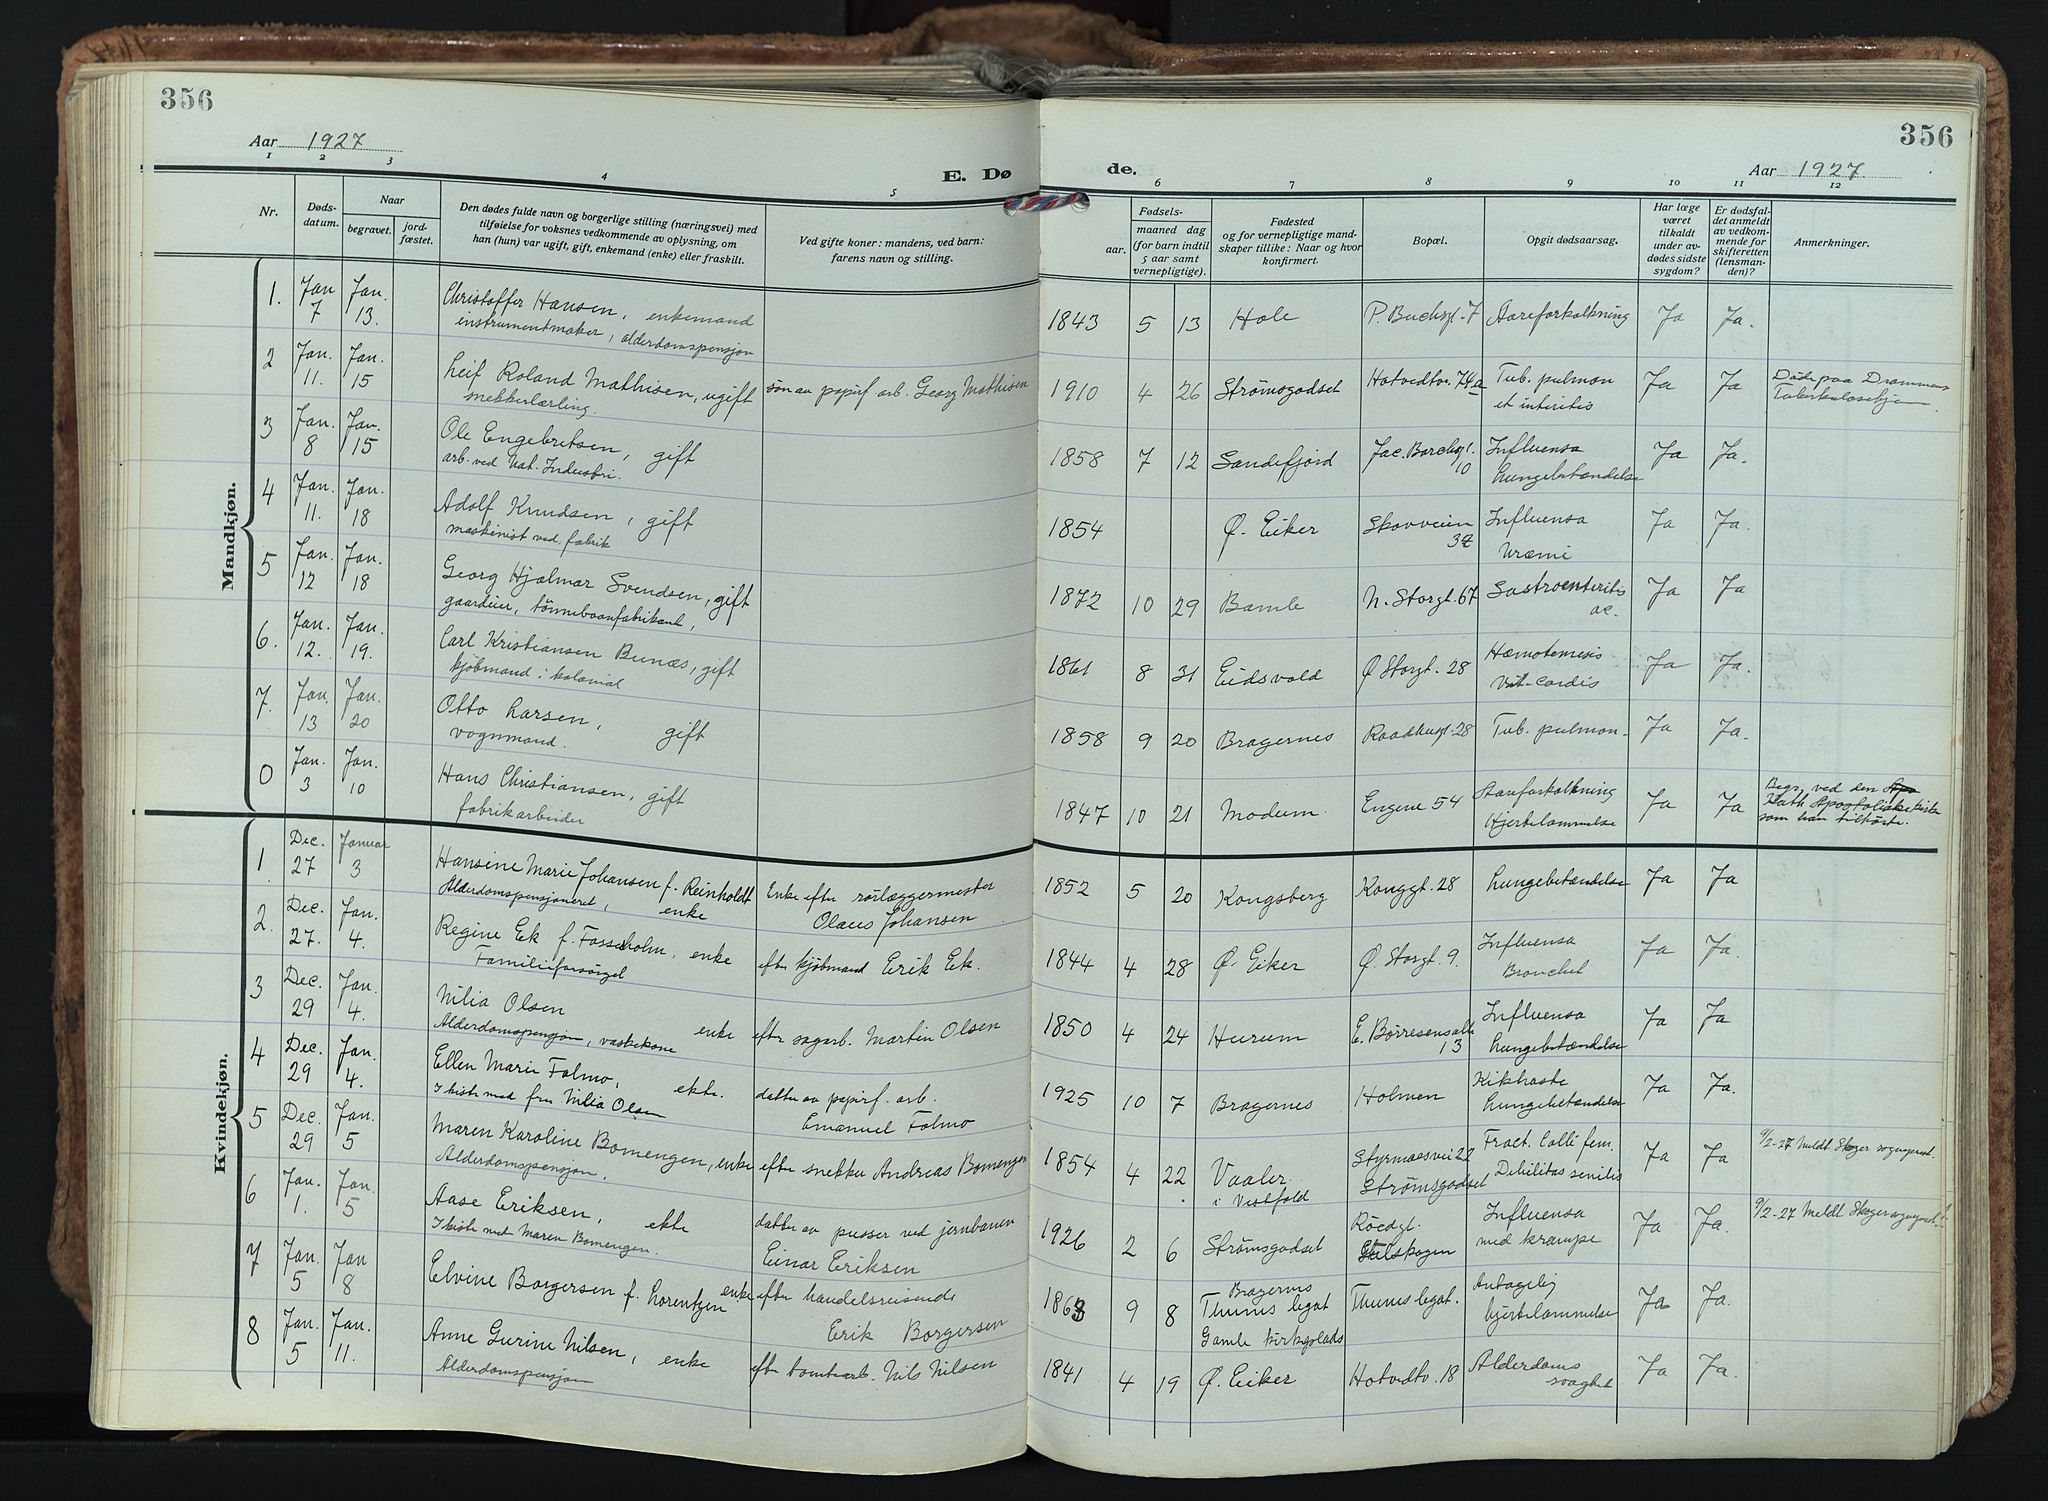 356
Aar 1927
E. Dø
1 2 3 4 5
Nr.
Døds-
datum.
Naar
begravet.
jord-
fæstet.
Den dødes fulde navn og borgerlige stilling (næringsvei) med
tilføielse for voksnes vedkommende av oplysning, om
han (hun) var ugift, gift, enkemand (enke) eller fraskilt.
Ved gifte koner: mandens, ved barn:
farens navn og stilling.
Mandkjøn.
1. Jan 7 Jan. 13. Christoffer Hansen, enkemand
instrumentmaker, alderdomspensjon
2 Jan. 11. Jan. 15 Leif Roland Mathisen, ugift søn av papirf. arb. Georg Mathisen
snekkerlærling.
3 Jan. 8 Jan. 15 Ole Engebretsen, gift
arb. ved Nat. Industri.
4 Jan. 11. Jan. 18 Adolf Knudsen, gift
maskinist ved fabrik
5 Jan. 12 Jan. 18 Georg Hjalmar Svendsen, gift
gaardeier, tøndebaanfabrikant,
6. Jan. 12. Jan. 19. Carl Kristiansen Bunæs, gift
kjøbmand i kolonial
7. Jan. 13 Jan. 20 Otto Larsen, gift
vognmand.
0 Jan. 3 Jan. 10 Hans Christiansen, gift
fabrikarbeider
Kvindekjøn.
1 Dec. 27 Januar 3 Hansine Marie Johansen f. Reinholdt Enke efter rørlæggermester
Alderdomspensjoneret, enke Olaus Johansen
2. Dec. 27. Jan. 4. Regine Ek f. Fossholm, enke efter kjøbmand Erik Ek.
Familieforsørget
3 Dec. 29 Jan. 4. Nilia Olsen enke efter sagarb. Martin Olsen
Alderdomspensjon, vaskekone
4 Dec. 29 Jan. 4. Ellen Marie Falmo, ekte. datter av papirf. arb.
I kiste med fru Nilia Olsen Emanuel Falmo
5 Dec. 29 Jan. 5 Maren Karoline Bomengen, enke efter snekker Andreas Bomengen
Alderdomspensjon,
6 Jan. 1. Jan. 5 Aase Eriksen, ekte datter av pusser ved jernbanen
I kiste med Maren Bomengen. Einar Eriksen
7 Jan. 5 Jan 8 Elvine Borgersen f. Lorentzen enke efter handelsreisende
Erik Borgersen
8 Jan. 5 Jan. 11. Anne Gurine Nilsen, enke efter tomtearb. Nils Nilsen
Alderdomspensjon
356
de.
Aar 1927
6 7 8 9 10 11 12
Fødsels-
aar.
maaned dag
(for barn indtil
5 aar samt
vernepligtige).
Fødested
og for vernepligtige mand-
skaper tillike: Naar og hvor
konfirmert.
Bopæl.
Opgit dødsaarsag.
Har læge
været
tilkaldt
under av-
dødes sidste
sygdom?
Er dødsfal-
det anmeldt
av vedkom-
mende for
skifteretten
(lensman-
den)?
Anmerkninger.
1843 5 13 Hole P. Buchsgt. 7 Aareforkalkning Ja Ja.
1910 4 26 Strømsgodset Hotvedtv. 74a Tub. pulmon Ja Ja Døde paa Drammens
et interitis Tuberkulosehjem
1858 7 12 Sandefjord Jac. Borchsgt. Influensa Ja Ja.
10 Lungebetændelse
1854 Ø. Eiker Skovveien Influensa Ja Ja.
Uræmi
1872 10 29 Bamle N. Storgt. 67 Gastroenteritis Ja Ja
ac.
1861 8 31 Eidsvold Ø Storgt. 28 Hæmotemesis Ja Ja.
Vit. cordis
1858 9 20 Bragernes Raadhusgt. 28 Tub. pulmon. Ja Ja.
1847 10 21 Modum. Engene 54 Aareforkalkning Ja Ja Begr. ved den Apo
Hjertelammelse Kath Apostoliske kirke
som han tilhørte.
1852 5 20 Kongsberg Konggt. 28 Lungebetændelse Ja Ja
1844 4 28 Ø. Eiker Ø. Storgt. 9. Influensa Ja Ja.
Bronchit
1850 4 24 Hurum E. Børresens alle Influensa Ja Ja
13 Lungebetændelse
1925 10 7 Bragernes Holmen Kikhoste Ja Ja.
Lungebetændelse
1854 4 22 Vaaler Styrmoesvei 22 Fract. Colli fem. Ja Ja 9/2-27 Meldt Skoger sogneprest.
i Vestfold Strømsgodset Debilitas senilis
1926 2 6 Strømsgodset Røedgt. Influensa Ja Ja. 9/2-27 Meldt Skoger sogneprest.
Gulskogen med krampe
1863 9 8 Bragernes Thumslegat. Antagelig Ja Ja.
Thums legat hjertelammelse
Gamle kirkeplads
1841 4 19 Ø. Eiker Hotvedtv. 18 Alderdoms Ja Ja.
svaghet